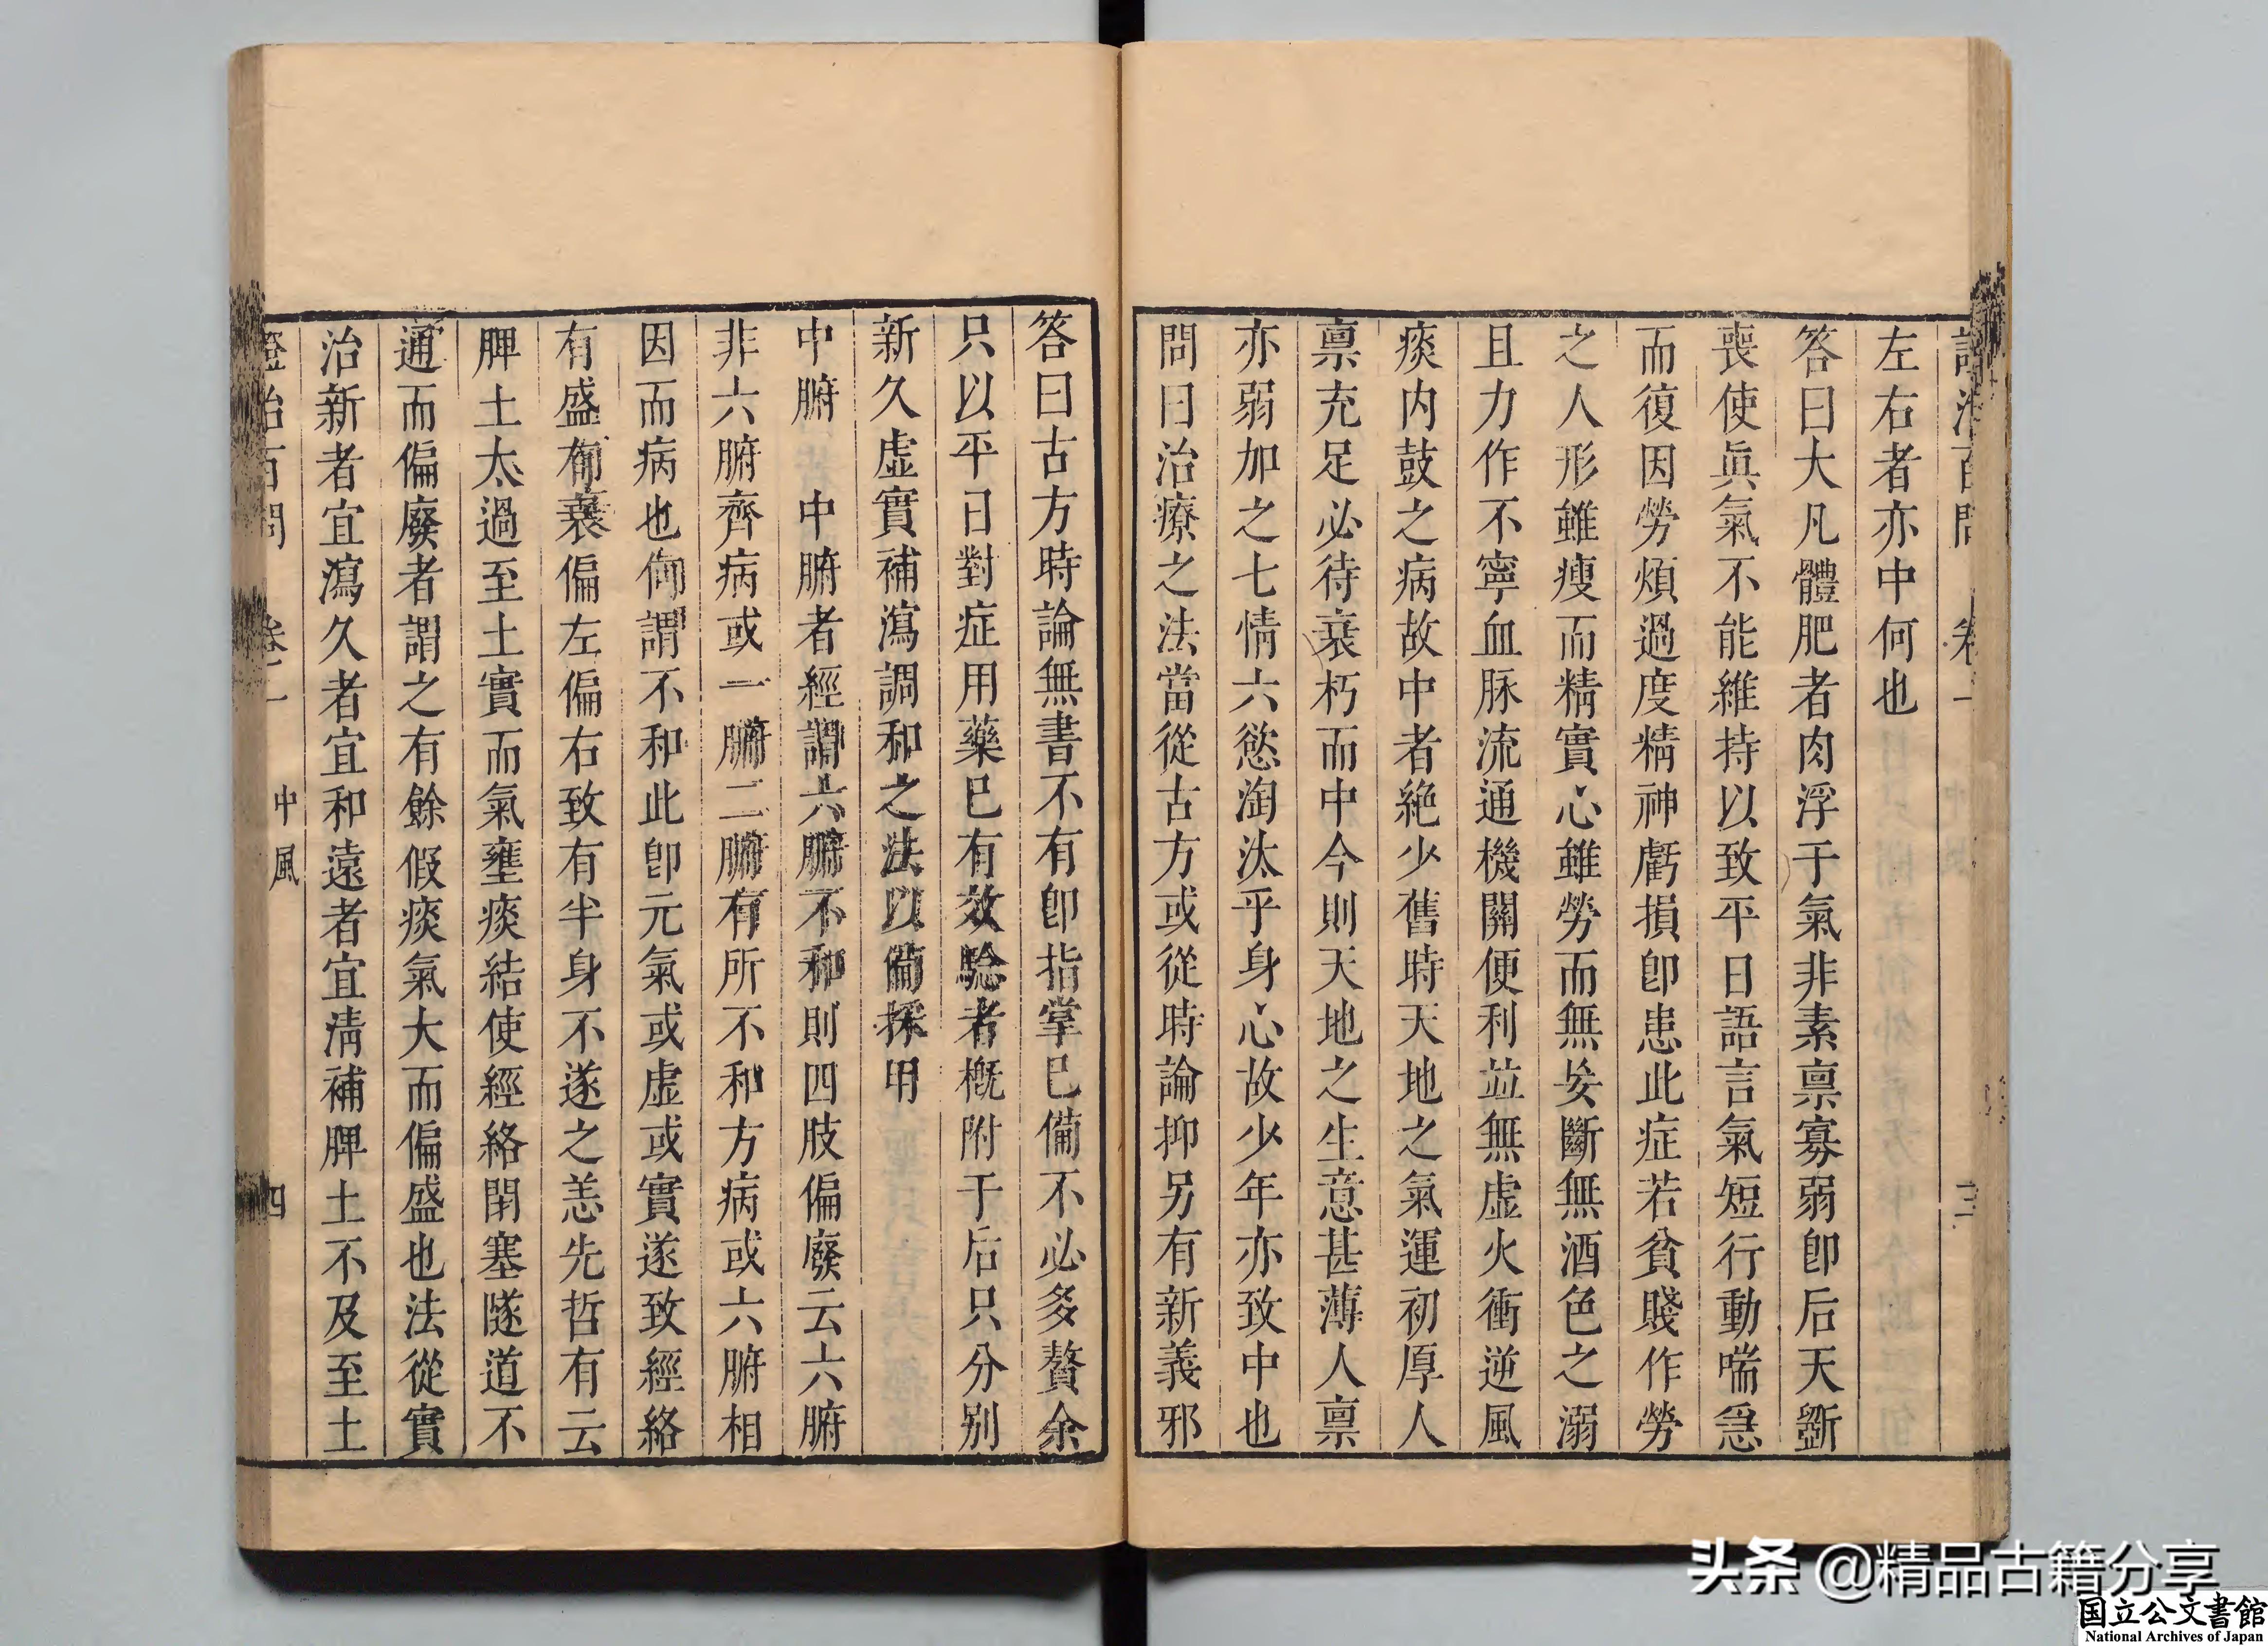 證治百問 卷一 三
左右者亦中何也
答曰大凡體肥者肉浮于氣非素禀寡弱卽后天斵
喪使眞氣不能維持以致平日語言氣短行動喘急
而復因勞煩過度精神虧損卽患此症若貧賤作勞
之人形雖瘦而精實心雖勞而無妄斷無酒色之溺
且力作不寧血脉流通機關便利並無虛火衝逆風
痰内鼓之病故中者絶少舊時天地之氣運初厚人
禀充足必待衰朽而中今則天地之生意甚薄人禀
亦弱加之七情六慾淘汰乎身心故少年亦致中也
問曰治療之法當從古方或從時論抑另有新義邪
答曰古方時論無書不有卽指掌已備不必多贅余
只以平日對症用藥已有效騐者槪附于后只分别
新久虛實補瀉調和之法以備採用
中腑 中腑者經謂六腑不和則四肢偏廢云六腑
非六腑齊病或一腑二腑有所不和方病或六腑相
因而病也何謂不和此卽元氣或虛或實遂致經絡
有盛有衰偏左偏右致有半身不遂之恙先哲有云
脾土太過至土實而氣壅痰結使經絡閉塞隧道不
通而偏廢者謂之有餘假痰氣大而偏盛也法從實
治新者宜瀉久者宜和遠者宜淸補脾土不及至土
證治百問 卷一 中風 四
头条 @精品古籍分享
国立公文書館
National Archives of Japan